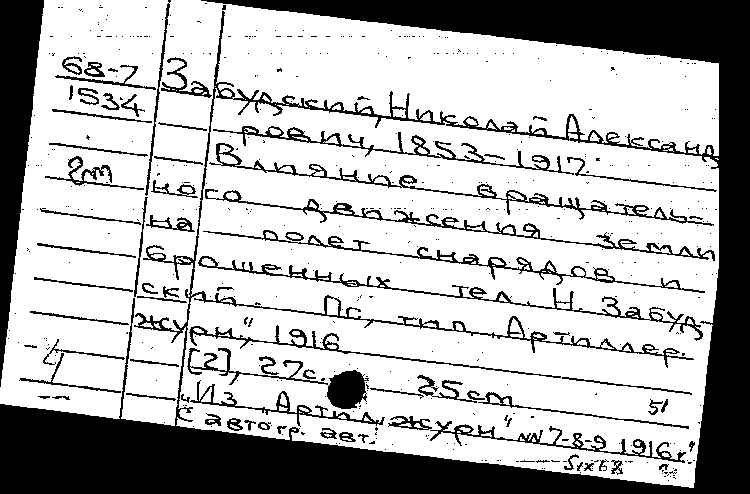 68-7
1534
Забудский, Николай Александ
рович, 1853-1917.
2m
Влияние вращатель=
ного движения земли
на полет снарядов и
брошенных тел. Н. Забуд-
ский. Пг, тип. "Артиллер.
журн", 1916.
[2], 27с. 25cm
51
4
"Из "Артил. журн." NN 7-8-9 1916 г."
С автогр. авт.
SIX68